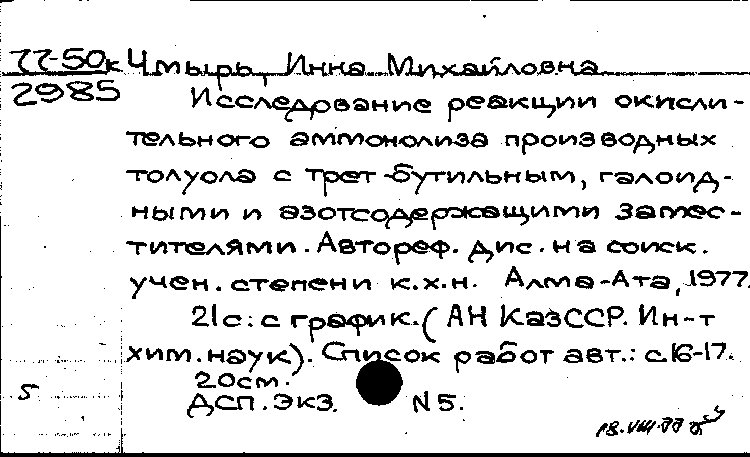 77-50к Чмырь, Инна Михайловна
2985 Исследование реакции окисли-
тельного аммонолиза производных
толуола с трет-бутильным, галоид-
ными и азотсодержащими замес-
тителями. Автореф. дис. на соиск.
учен. степени к.х.н. Алма-Ата, 1977.
21с.: с график. (АН КазССР. Ин-т
хим. наук). Список работ авт.: с.16-17.
20см.
5 ДСП. Экз. N5.
18.VIII.77